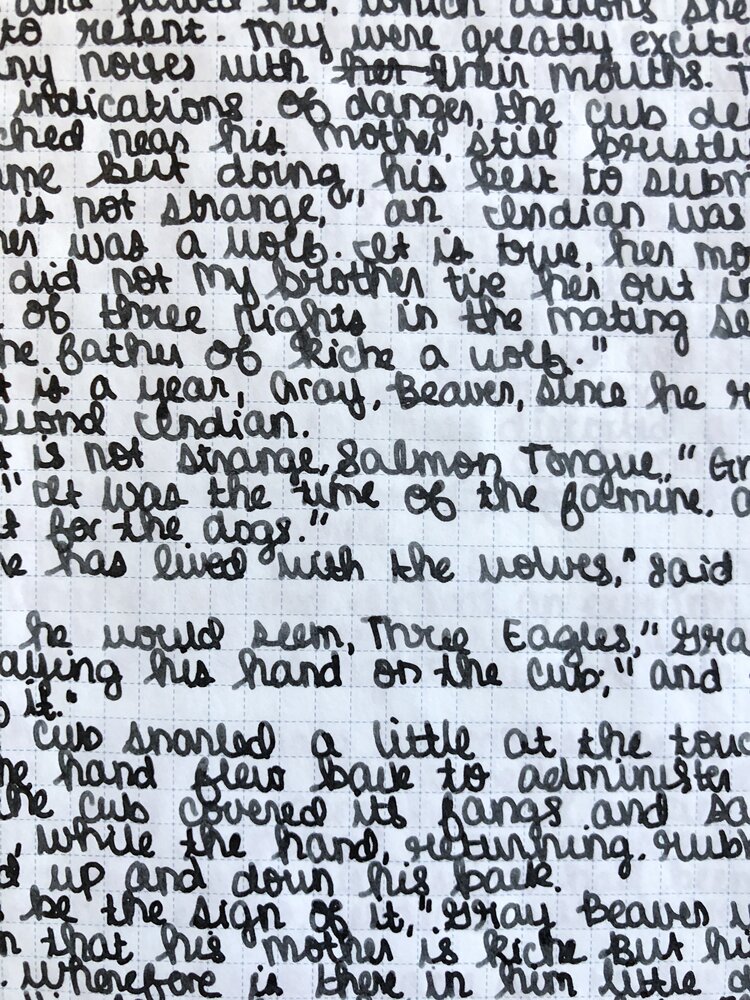 and pawed her, which actions she
to resent. They were greatly excite
ny noises with her their mouths. T
indications of danger, the cub de
ched near his mother still bristli
me but doing his best to subm
is not strange," an Indian was
her was a wolf. It is true, her mo
did not my brother tie her out i
of three nights in the mating se
he father of Kiche a wolf."
t is a year, Gray, Beaver, since he r
econd Indian.
t is not strange, Salmon Tongue," Gr
" It was the time of the famine, a
t for the dogs."
e has lived with the wolves," said
he would seem, Three Eagles," Gra
aying his hand on the cub," and
o it."
cub snarled a little at the touc
he hand flew back to administer
the cub covered its fangs and sa
, while the hand, returning, rubb
d up and down his back.
be the sign of it," Gray Beaver w
n that his mother is Kiche But hi
. Wherefore is there in him little d